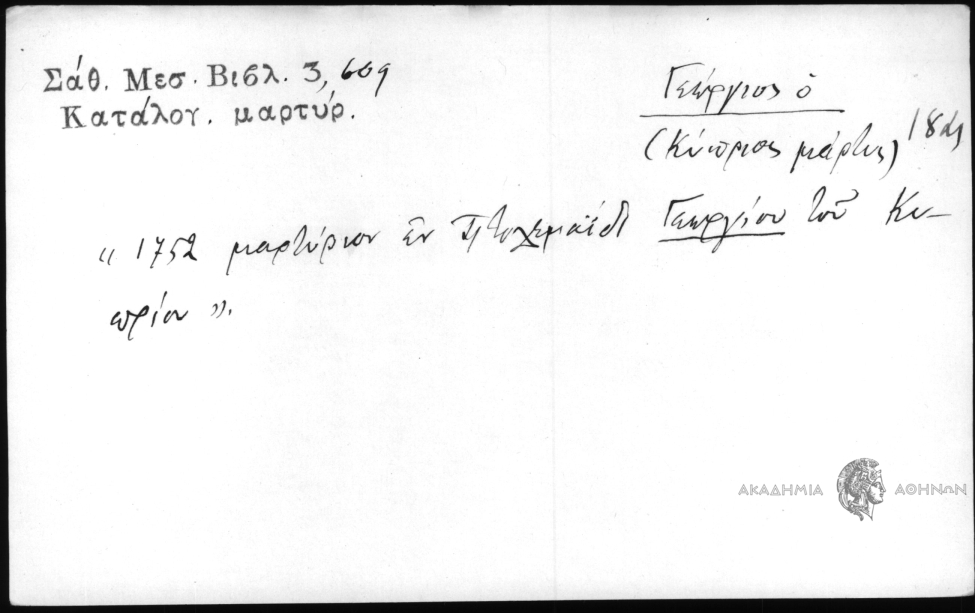 Σάθ. Μεσ. Βιβλ. 3, 609
Κατάλογ. μαρτύρ.
Γεώργιος ὁ
(Κύπριος μάρτυς)
« 1752 μαρτύριον ἐν Πτολεμαΐδι Γεωργίου τοῦ Κυ–
πρίου ».
ΑΚΑΔΗΜΙΑ ΑΘΗΝΩΝ